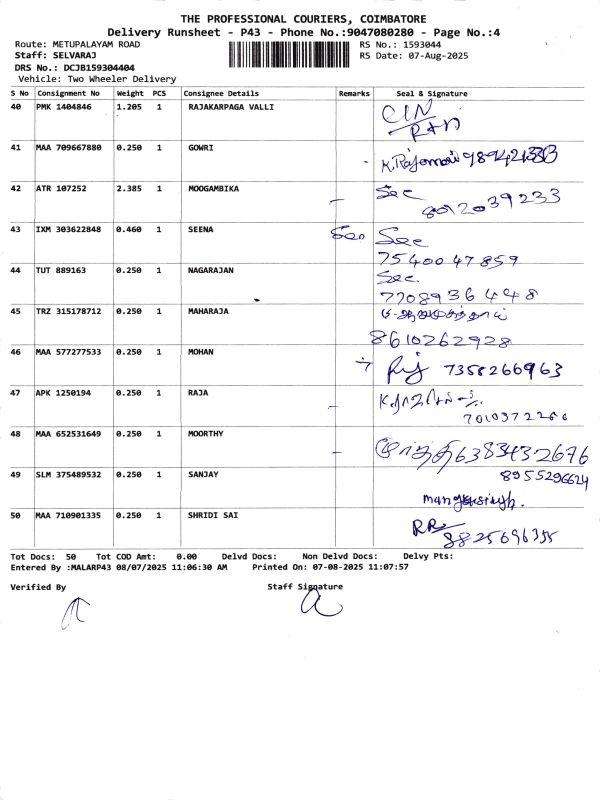 THE PROFESSIONAL COURIERS, COIMBATORE
Delivery Runsheet - P43 - Phone No.:9047080280 - Page No.:4
Route: METUPALAYAM ROAD RS No.: 1593044
Staff: SELVARAJ RS Date: 07-Aug-2025
DRS No.: DCJB159304404
Vehicle: Two Wheeler Delivery
S No Consignment No Weight PCS Consignee Details Remarks Seal & Signature
40 PMK 1404846 1.205 1 RAJAKARPAGA VALLI
41 MAA 709667880 0.250 1 GOWRI
42 ATR 107252 2.385 1 MOOGAMBIKA Sec
8012039233
43 IXM 303622848 0.460 1 SEENA Sec
7540047859
44 TUT 889163 0.250 1 NAGARAJAN Sec.
7708936448
45 TRZ 315178712 0.250 1 MAHARAJA
8610262928
46 MAA 577277533 0.250 1 MOHAN 7358266963
47 APK 1250194 0.250 1 RAJA
48 MAA 652531649 0.250 1 MOORTHY 6383432676
49 SLM 375489532 0.250 1 SANJAY 8955296624
50 MAA 710901335 0.250 1 SHRIDI SAI
Tot Docs: 50 Tot COD Amt: 0.00 Delvd Docs: Non Delvd Docs: Delvy Pts:
Entered By :MALARP43 08/07/2025 11:06:30 AM Printed On: 07-08-2025 11:07:57
Verified By Staff Signature